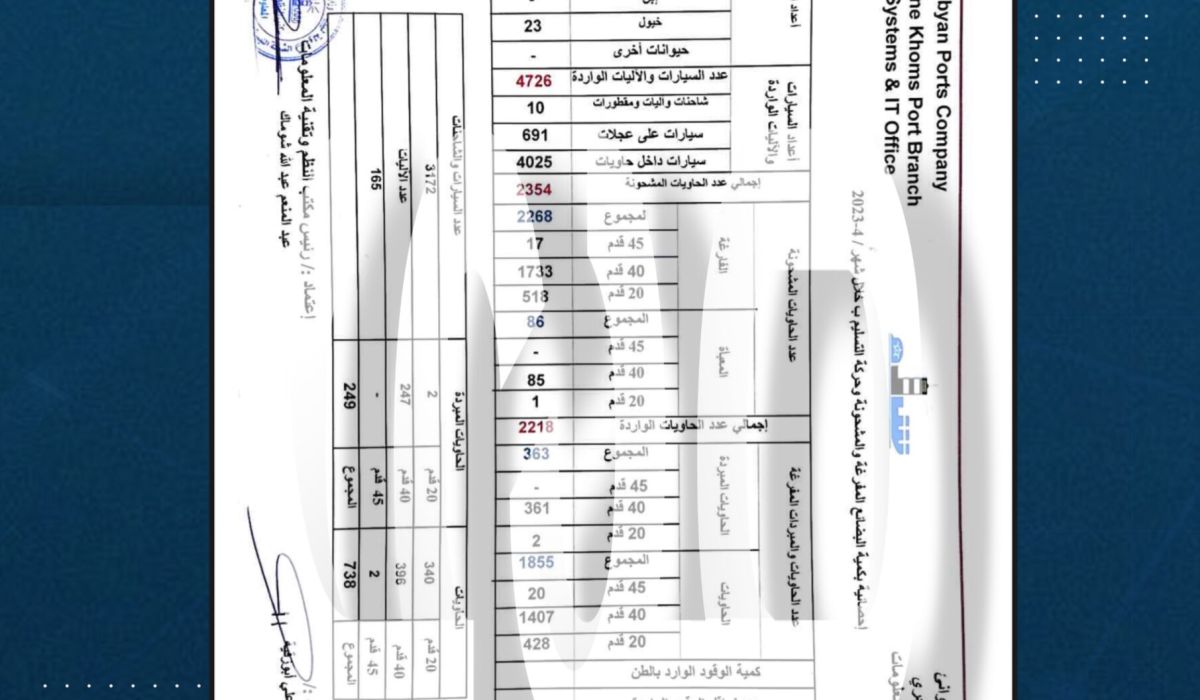 byan Ports Company
ne Khoms Port Branch
Systems & IT Office
إحصائية بكمية البضائع المفرغة والمشحونة وحركة التسليم ب خلال شهر / 4-2023
خيول 23
حيوانات أخرى -
أعداد السيارات والآليات الواردة
عدد السيارات والآليات الواردة 4726
شاحنات واليات ومقطورات 10
سيارات على عجلات 691
سيارات داخل حاويات 4025
إجمالي عدد الحاويات المشحونة 2354
عدد الحاويات المشحونة
الفارغة
لمجموع 2268
45 قدم 17
40 قدم 1733
20 قدم 518
المعبأة
المجموع 86
45 قدم -
40 قدم 85
20 قدم 1
إجمالي عدد الحاويات الواردة 2218
عدد الحاويات والمبردات المفرغة
الحاويات المبردة
المجموع 363
45 قدم -
40 قدم 361
20 قدم 2
الحاويات
المجموع 1855
45 قدم 20
40 قدم 1407
20 قدم 428
كمية الوقود الوارد بالطن
عدد السيارات والشاحنات
3172
عدد الآليات
165
الحاويات المبردة
20 قدم 2
40 قدم 247
45 قدم -
المجموع 249
الحاويات
20 قدم 340
40 قدم 396
45 قدم 2
المجموع 738
إعتماد :/ رئيس مكتب النظم وتقنية المعلومات
عبد المنعم عبد الله شوماك